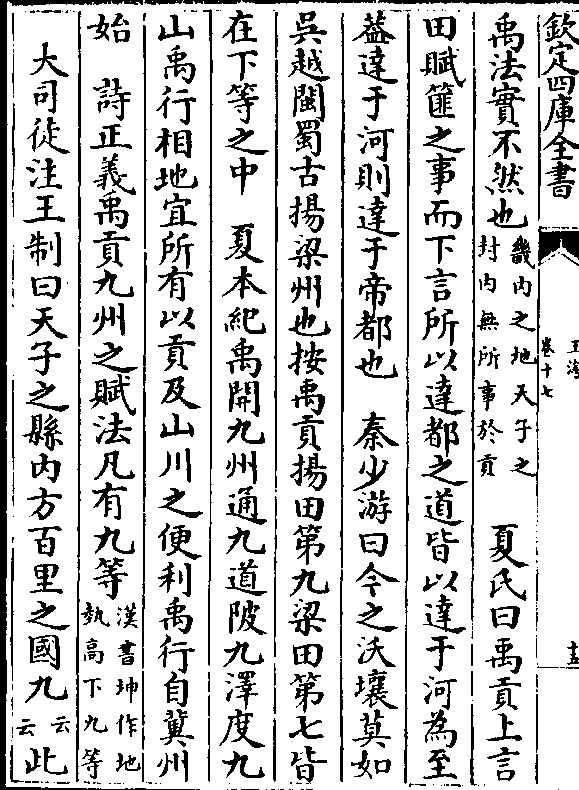 欽定四庫全書
玉海
卷十七
十五
禹法實不然也畿内之地天子之封内無所事於貢 夏氏曰禹貢上言
田賦篚之事而下言所以達都之道皆以達于河為至
葢達于河則達于帝都也 秦少游曰今之沃壤莫如
吳越閩蜀古揚梁州也按禹貢揚田第九梁田第七皆
在下等之中 夏本紀禹開九州通九道陂九澤度九
山禹行相地宜所有以貢及山川之便利禹行自冀州
始 詩正義禹貢九州之賦法凡有九等漢書坤作地埶高下九等
大司徒注王制曰天子之縣内方百里之國九云云此